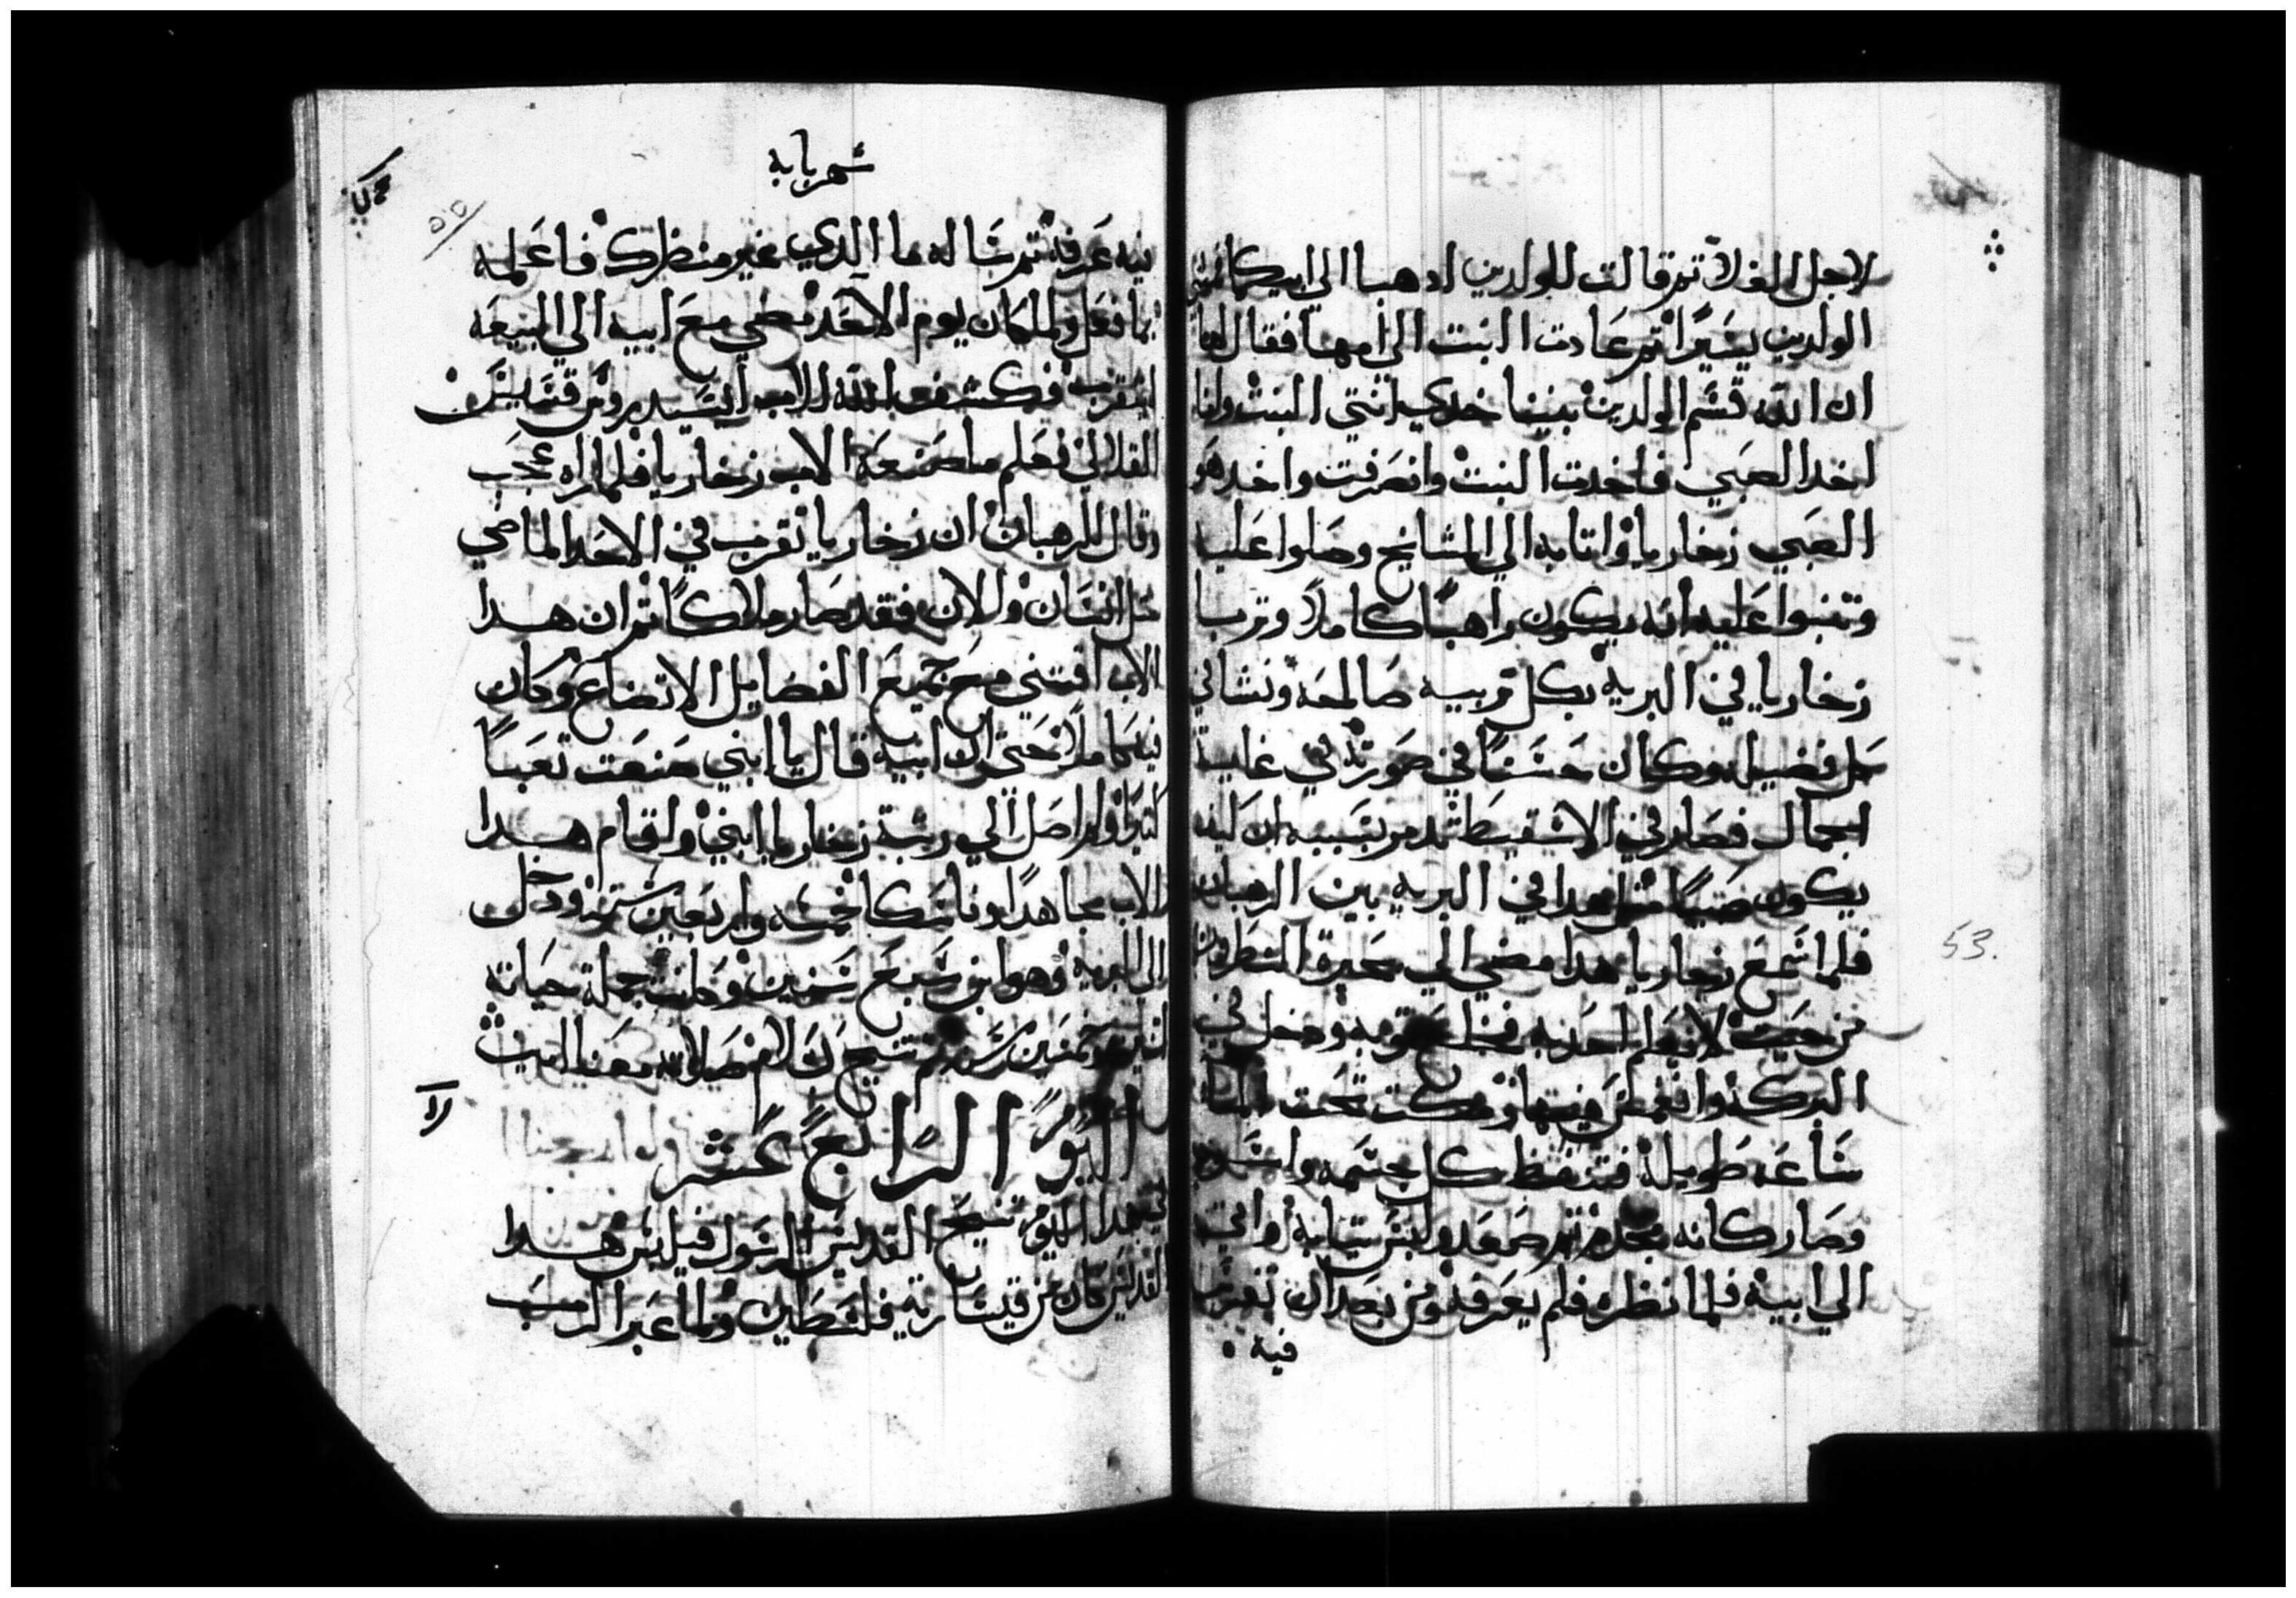 لاجل الغلا تم قالت للولدين ادهبا الي ابيكما فمشي
الولدين يسيرا تم عادت البنت الي امها فقال لها
ان الله قسم الولدين بيننا خدي انتي البنت وانا
اخد الصبي فاخدت البنت وانصرفت واخد هو
الصبي زخاريا واتا به الي المشايخ وصلوا عليه
وتنبوا عليه انه يكون راهبا كاملا وتربا
زخاريا في البريه بكل تربيه صالحه ونشا في
كل فضيله وكان حسنا في صورته في غاية
الجمال فصار في الاسقيط تدمر بسببه ان كيف
يكون صبيا مثل هدا في البريه بين الرهبان
فلما سمع زخاريا هدا مضي الي بحيرة النطرون
من حيث لا يعلم احد به فخلع توبه ودخل في
البركه وانغمس فيها ومكت تحت الماء
ساعه طويله فتنفط كل جسمه واسود
وصار كانه مجدم تم صعد ولبس تيابه واتي
الي ابيه فلما نظره فلم يعرفه ومن بعد ان تفرس
فيه
شهر بابه
فيه عرفه تم ساله ما الدي غير منظرك فاعلمه
بما فعل ولما كان يوم الاحد مضي مع ابيه الي البيعه
ليتقرب فكشف الله للاب ايسيدروس قسيس
القلالي فعلم ما صنعه الاب زخاريا فلما راه عجب
وقال للرهبان ان زخاريا تقرب في الاحد الماضي
مثل انسان والان فقد صار ملاكا تم ان هدا
الاب اقتني مع جميع الفضايل الاتضاع وكان
فيه كاملا حتي ان ابيه قال يا ابني صنعت تعبا
كتيرا ولم اصل الي رتبة زخاريا ابني واقام هدا
الاب مجاهدا وناسكا خمسه واربعين سنه ودخل
الي البريه وهو ابن سبع سنين وكانت جملة حياته
اتنين وخمسين سنه تم تنيح بسلام صلاته معنا امين
اليوم الرابع عشر
في هدا اليوم تنيح القديس الرسول فيلبس هدا
القديس كان من قيسارية فلسطين ولما عبر الرب
53.